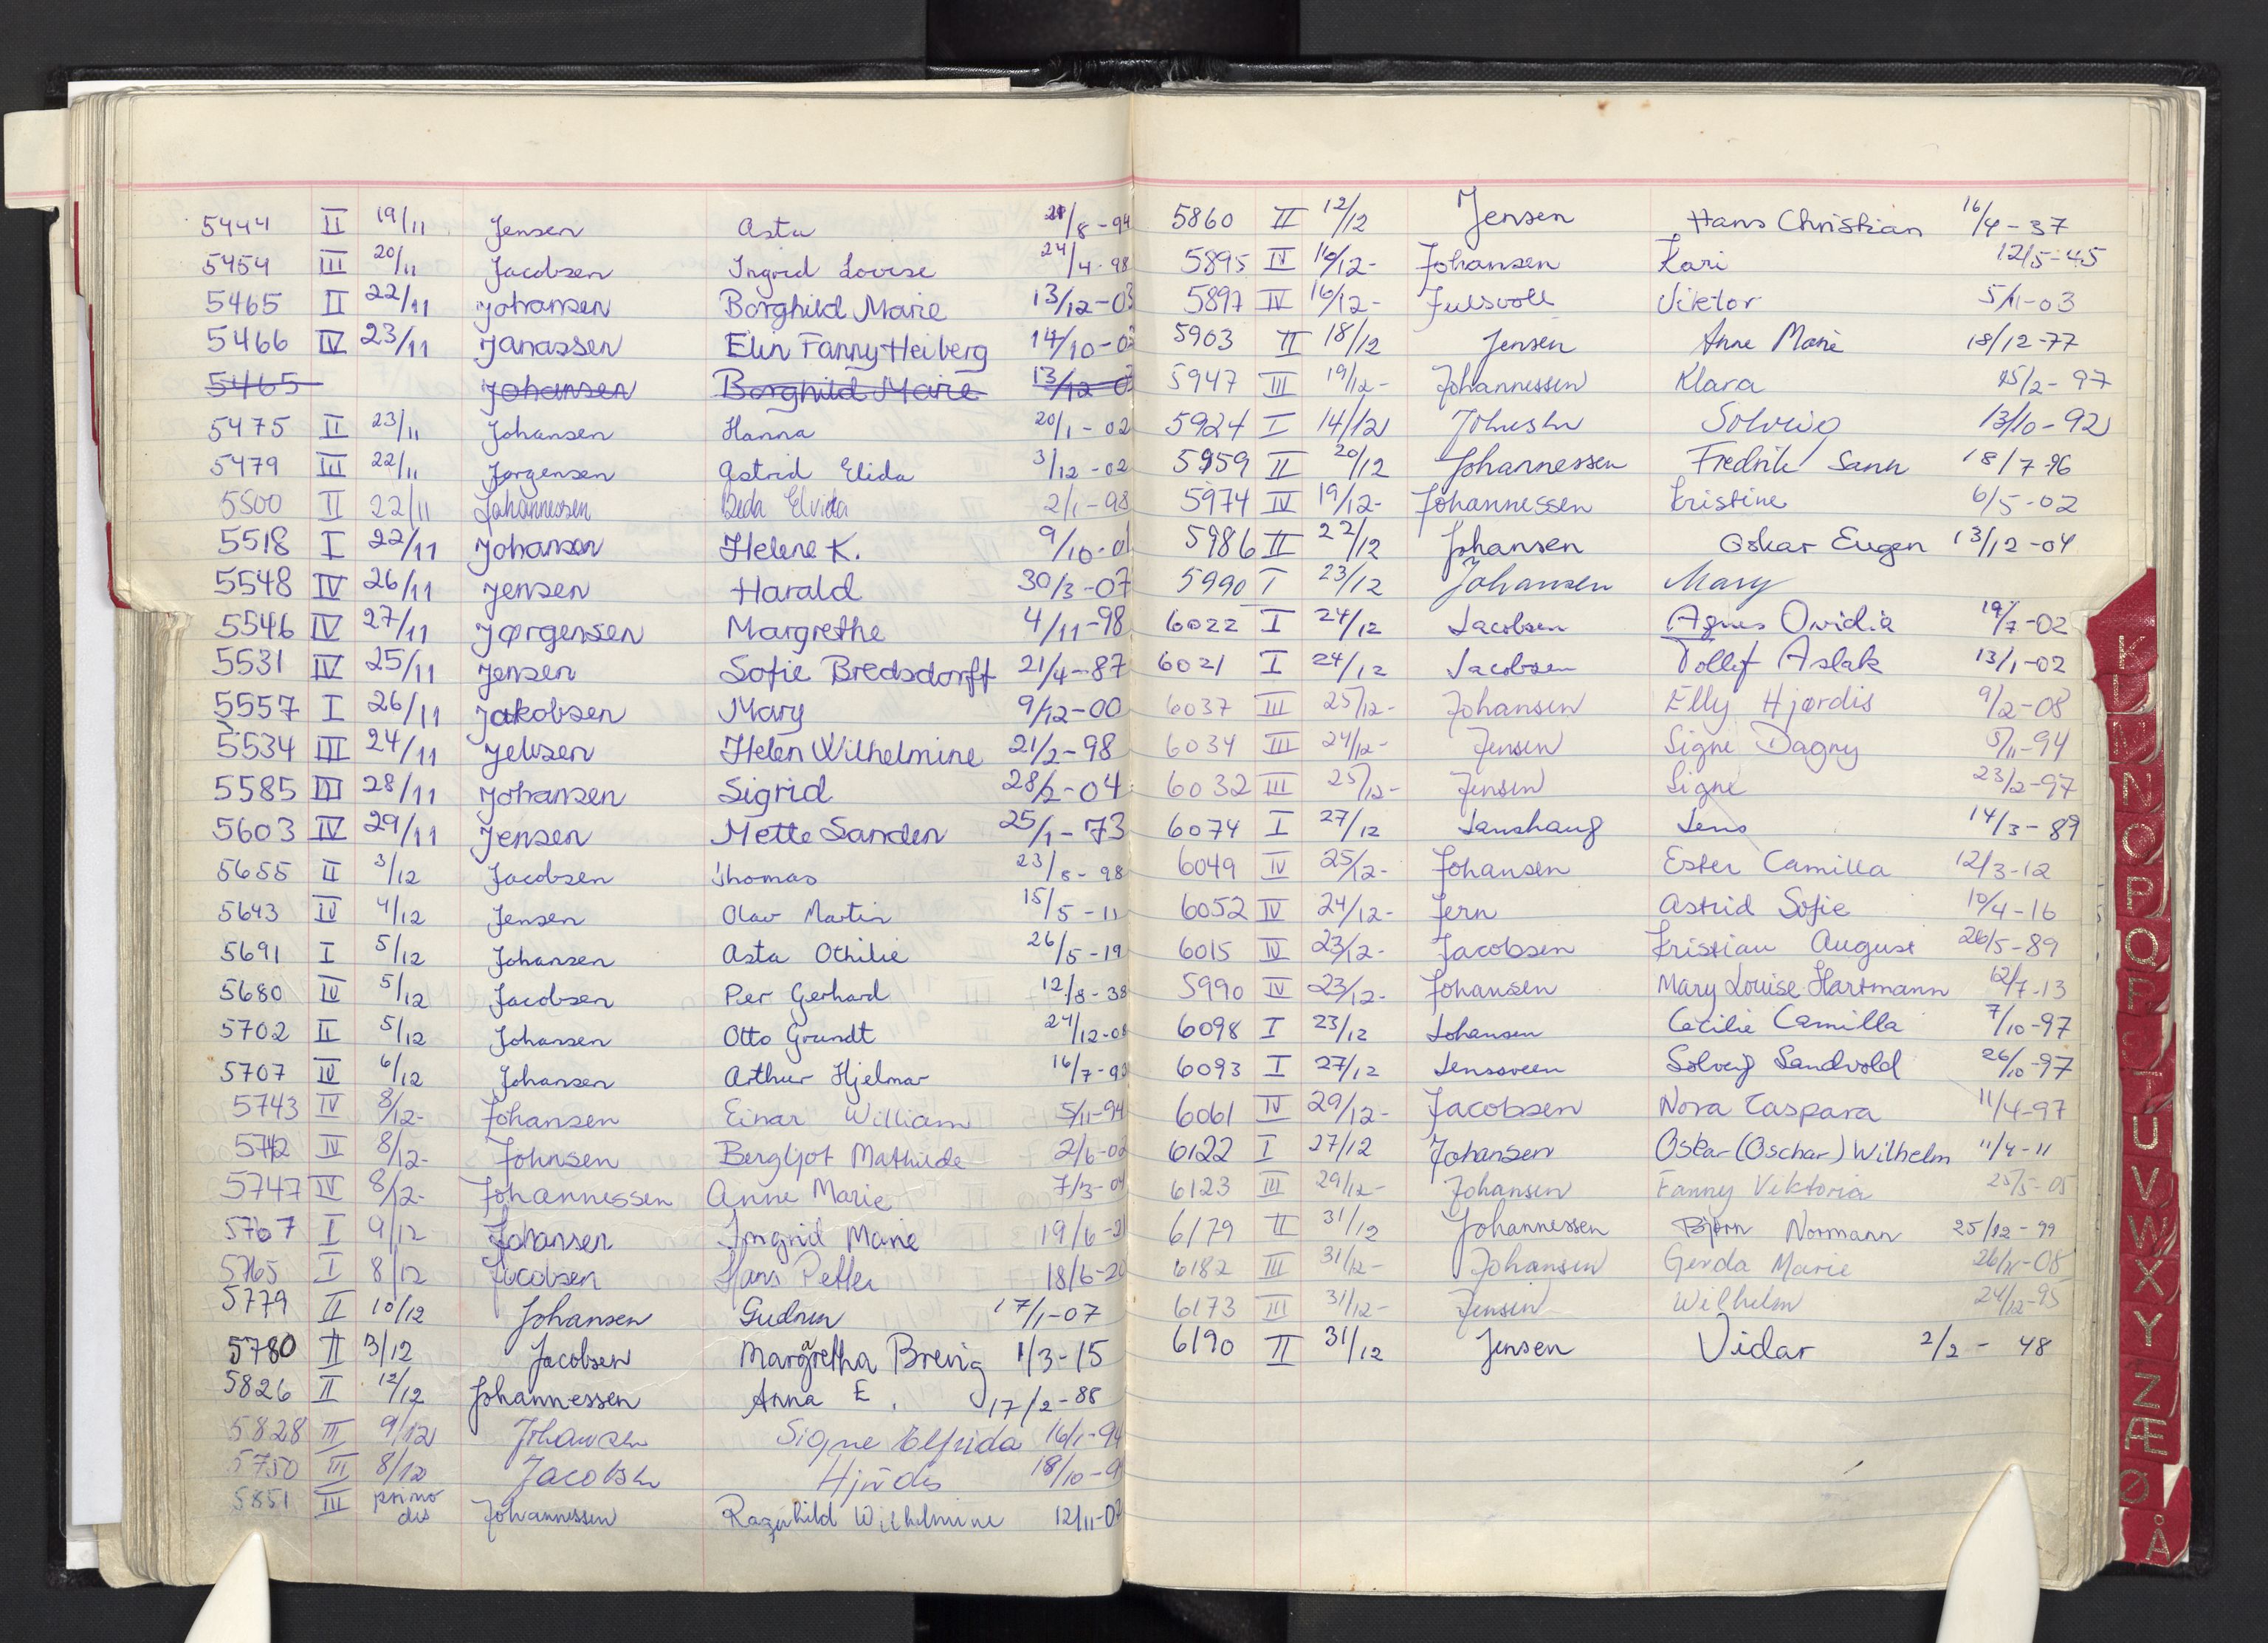 5444 II 19/11 Jensen Asta 21/8-94
5454 III 20/11 Jacobsen Ingrid Lovise 24/4-98
5465 II 22/11 Johansen Borghild Marie 13/12-03
5466 IV 23/11 Janassen Elin Fanny Heiberg 14/10-03
5465 Johansen Borghild Marie 13/12-03
5475 II 23/11 Johansen Hanna 20/1-02
5479 III 22/11 Jørgensen Astrid Elida 3/12-02
5500 II 22/11 Johannessen Beda Elvida 2/1-98
5518 I 22/11 Johansen Helene K. 9/10-01
5548 IV 26/11 Jensen Harald 30/3-07
5546 IV 27/11 Jørgensen Margrethe 4/11-98
5531 IV 25/11 Jensen Sofie Bredsdorff 21/4-87
5557 I 26/11 Jakobsen Mary 9/12-00
5534 III 24/11 Jebsen Helen Wilhelmine 21/2-98
5585 III 28/11 Johansen Sigrid 28/2-04
5603 IV 29/11 Jensen Mette Sanden 25/1-73
5655 II 3/12 Jacobsen Thomas 23/8-98
5643 IV 4/12 Jensen Olav Martin 15/5-11
5691 I 5/12 Johansen Asta Othilie 26/5-19
5680 IV 5/12 Jacobsen Per Gerhard 12/8-38
5702 II 5/12 Johansen Otto Grundt 24/12-08
5707 IV 6/12 Johansen Arthur Hjelmar 16/7-99
5743 IV 8/12- Johansen Einar William 5/11-94
5742 IV 8/12- Johnsen Bergljot Mathilde 2/6-02
5747 IV 8/12- Johannessen Anne Marie 7/3-04
5767 I 9/12 Johansen Ingrid Marie 19/6-21
5765 I 8/12 Jacobsen Hans Petter 18/6-20
5779 II 10/12 Johansen Gudrun 17/1-07
5780 II 3/12 Jacobsen Margretha Brevig 1/3-15
5826 II 12/12 Johannessen Anna E. 17/2-88
5828 III 9/12 Johansen Signe Elfrida 16/1-94
5750 III 8/12 Jacobsen Hjørdis 18/10-9
5851 III primo des Johannessen Ragnhild Wilhelmine 12/11-02
5860 II 12/12 Jensen Hans Christian 16/4-37
5895 IV 16/12- Johansen Kari 12/5-45
5897 IV 16/12- Julsvoll Viktor 5/11-03
5903 II 18/12 Jensen Anne Marie 18/12-77
5947 III 19/12- Johannessen Klara 15/2-97
5924 I 14/12 Johnsen Solveig 13/10-92
5959 II 20/12 Johannessen Fredrik Sann 18/7-96
5974 IV 19/12- Johannessen Kristine 6/5-02
5986 II 22/12 Johansen Oskar Eugen 13/12-04
5990 I 23/12 Johansen Mary
6022 I 24/12 Jacobsen Agnes Ovidia 19/7-02
6021 I 24/12 Jacobsen Tollef Aslak 13/1-02
6037 III 25/12- Johansen Elly Hjørdis 9/2-08
6034 III 24/12- Jensen Signe Dagny 5/11-94
6032 III 25/12- Jensen Signe 23/2-97
6074 I 27/12 Janshaug Jens 14/3-89
6049 IV 25/12- Johansen Ester Camilla 12/3-12
6052 IV 24/12- Jern Astrid Sofie 10/4-16
6015 IV 23/12- Jacobsen Kristian August 26/5-89
5990 IV 23/12- Johansen Mary Louise Hartmann 12/7-13
6098 I 23/12 Johansen Cecilie Camilla 7/10-97
6093 I 27/12 Jenssveen Solveig Sandvold 26/10-97
6061 IV 29/12- Jacobsen Nora Caspara 11/4-97
6122 I 27/12 Johansen Oskar (Oschar) Wilhelm 11/4-11
6123 III 29/12- Johansen Fanny Viktoria 25/5-05
6179 II 31/12 Johannessen Bjørn Normann 25/12-99
6182 III 31/12- Johansen Gerda Marie 26/11-08
6173 III 31/12- Jensen Wilhelm 24/12-95
6190 II 31/12 Jensen Vidar 2/2-48
K
L
M
N
O
P
Q
R
S
T
U
V
W
X
Y
Z
Æ
Ø
Å